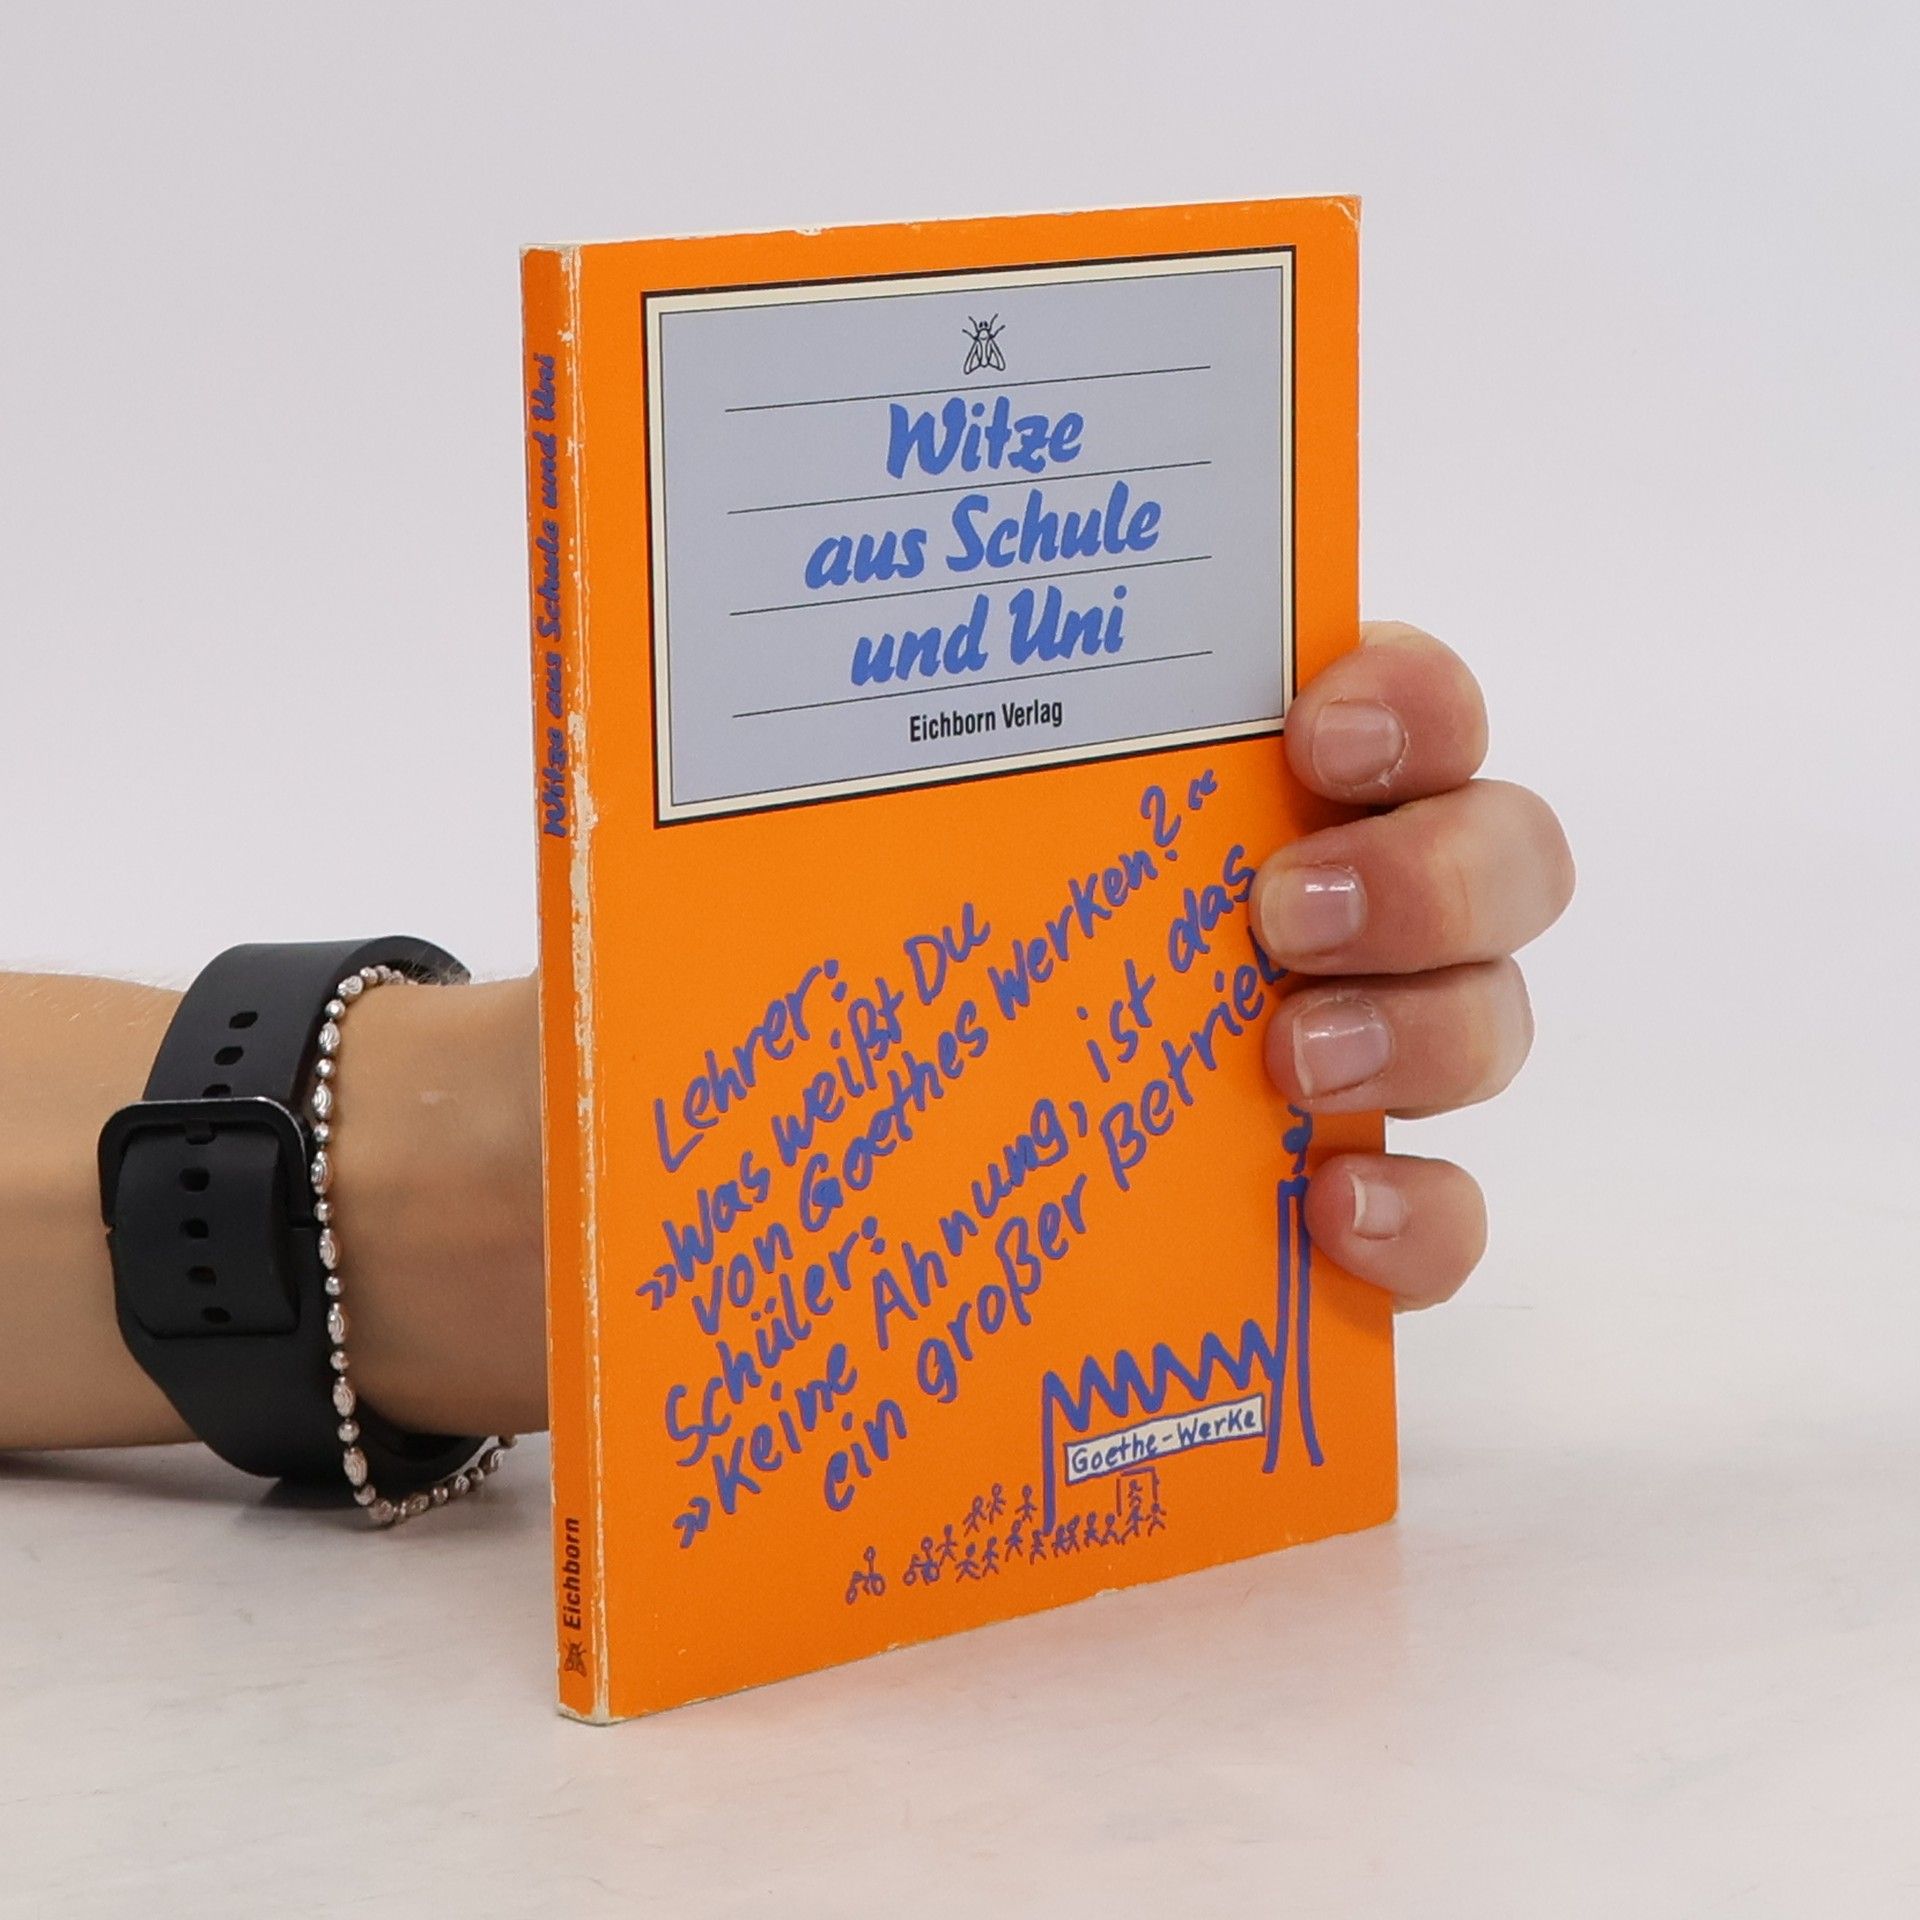 Witze
aus Schule
und Uni
Eichborn Verlag
Lehrer:
»Was weißt Du
von Goethes Werken?«
Schüler:
»Keine Ahnung, ist das
ein großer Betrieb
Goethe-Werke
Witze aus Schule und Uni
Eichborn